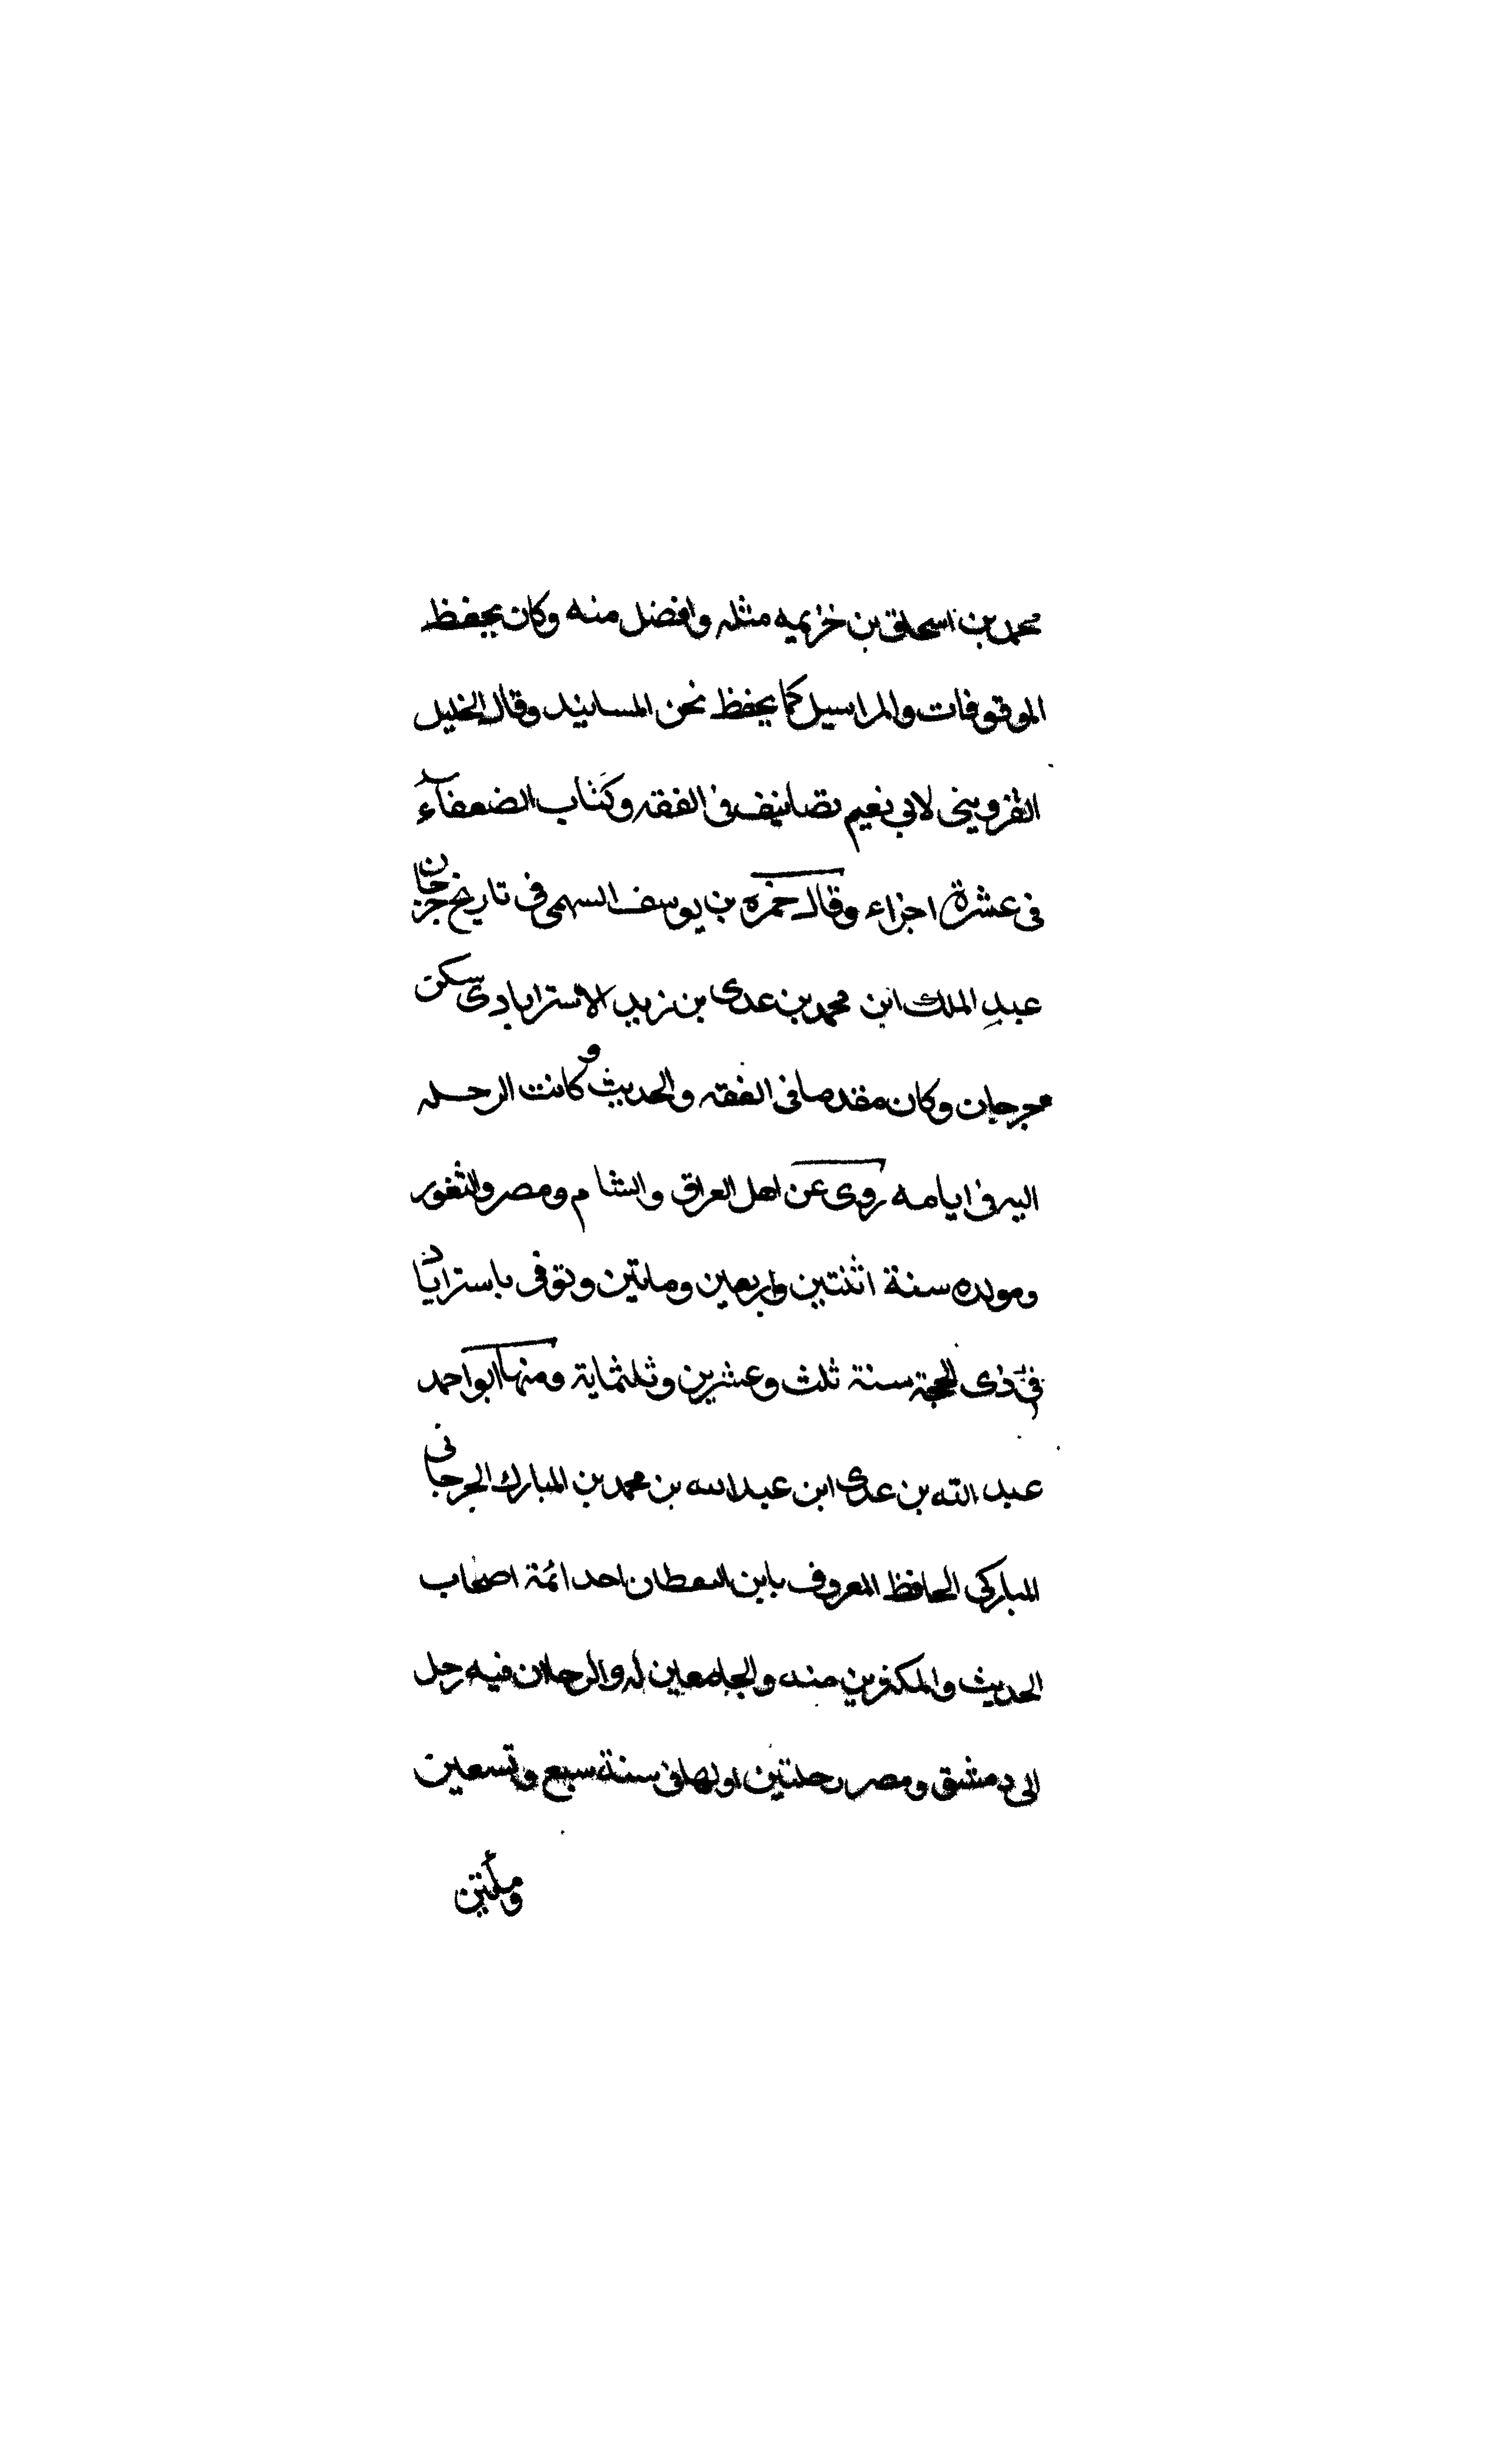 محمد بن اسحاق بن خزيمه مثله وافضل منه وكان يحفظ
الموقوفات والمراسيل كما يحفظ نحن المسانيد وقال الخليل
القزويني لابي نعيم تصانيف في الفقه وكتاب الضعفآء
في عشرة اجزاء وقال حمزه بن يوسف السهمي في تاريخ جرجان
عبد الملك ابن محمد بن عدى بن زيد الاسترابادى سكن
جرجان وكان مقدما في الفقه والحديث وكانت الرحله
اليه في ايامه روى عن اهل العراق والشام ومصر والثغور
ومولده سنة اثنتين واربعين وماتين وتوفي باستراباد
في ذى الحجة سنة ثلث وعشرين وثلثماية ومنها ابو احمد
عبد الله بن عدى ابن عبد الله بن محمد بن المبارك الجرجاني
المباركي الحافظ المعروف بابن القطان احد ائمة اصحاب
الحديث والمكثرين منه والجامعين له والرحالين فيه رحل
الى دمشق ومصر رحلتين اولهافي سنة سبع وتسعين
ومأتين